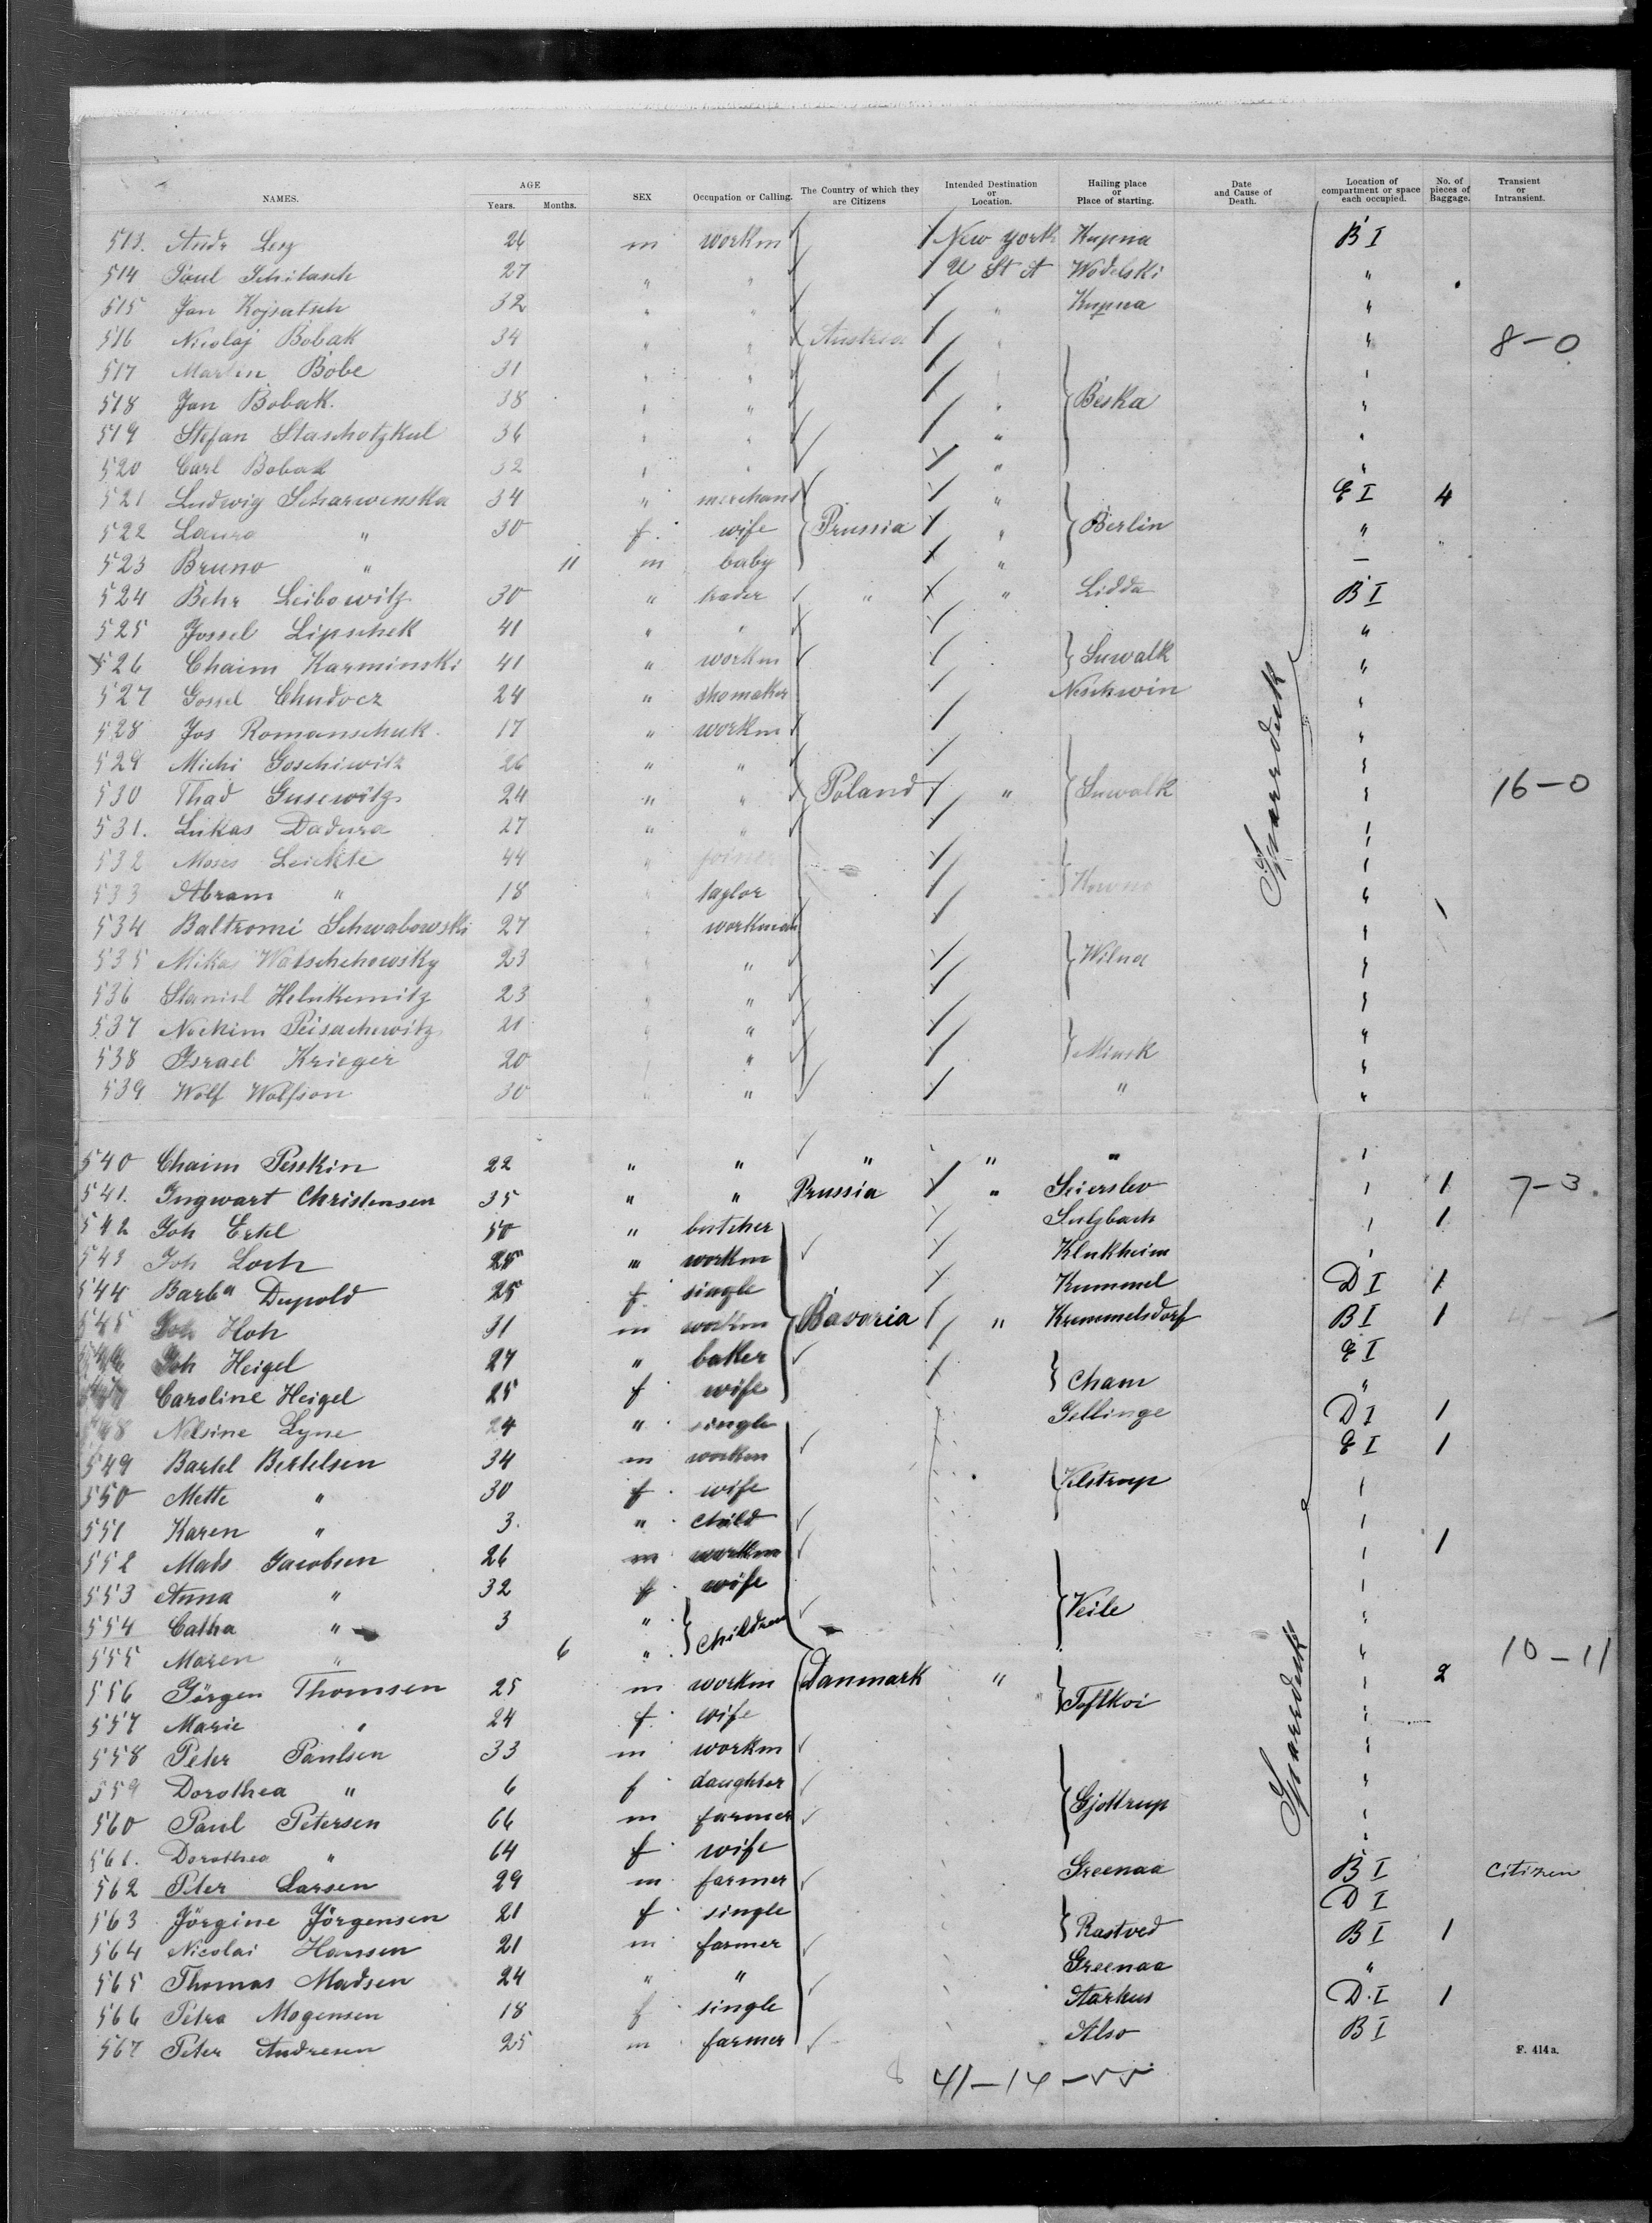 NAMES. AGE Years. Months. SEX Occupation or Calling. The Country of which they are Citizens Intended Destination or Location. Hailing place or Place of starting. Date and Cause of Death. Location of compartment or space each occupied. No. of pieces of Baggage. Transient or Intransient.
513. Andr Lesz 26 m workm New York Kupna B I
514 Paul Schitasch 27 " " U St A Wodelski "
515 Jan Kojsatsch 32 " " " Kupna "
516 Nicolaj Bobak 34 " " Austria " " 8-0
517 Martin Bobe 31 " " " "
518 Jan Bobak. 38 " " " Beska "
519 Stefan Staschotzkul 36 " " " "
520 Carl Bobak 32 " " " "
521 Ludwig Scharwenska 34 " merchant " E I 4
522 Laura " 30 f. wife Prussia " Berlin " "
523 Bruno " 11 m baby " —
524 Behr Leibowitz 30 " trader " " Lidda B I
525 Jossel Lipschek 41 " " "
526 Chaim Karminski 41 " workm Suwalk "
527 Gossel Chudocz 24 " shomaker Neschwin "
528 Jos Romanschuk. 17 " workm "
529 Michi Goschiwitz 26 " " "
530 Thad Gusewitz 24 " " Poland " Suwalk " 16-0
531. Lukas Dadura 27 " " "
532 Moses Leichte 44 " joiner "
533 Abram " 18 " taylor Kowno "
534 Baltromi Schwabowski 27 " workman "
535 Mikas Watschchowsky 23 " " Wilna "
536 Staniel Helnkemitz 23 " " "
537 Nochim Peisachewitz 21 " " "
538 Israel Krieger 20 " Minsk "
539 Wolf Wolfson 30 " " " "
540 Chaim Pesskin 22 " " " " " "
541. Ingwart Christensen 35 " " Prussia " Seierslev " 1 7-3.
542 Joh Ertl 50 " butcher Sulzbach " 1
543 Joh Loch 25 " workm Klukheim "
544 Barba Dupold 25 f. single Kummel D I 1
545 Joh Hoh 31 m workm Bavaria " Kremmelsdorf B I 1
546 Joh Heigel 27 " baker E I
547 Caroline Heigel 25 f wife Cham "
548 Nelsine Lyne 24 " single Gellinge D I 1
549 Bartel Bertelsen 34 m workm E I 1
550 Mette " 30 f. wife Velstrup "
551 Karen " 3. " child "
552 Mads Jacobsen 26 m workm " 1
553 Anna " 32 f. wife "
554 Catha " 3 " children Veile "
555 Maren " 6 " " 10-11
556 Jörgen Thomsen 25 m workm Danmark " " 2
557 Marie " 24 f. wife Toftkoi "
558 Peter Paulsen 33 m workm "
559 Dorothea " 6 f daughter "
560 Paul Petersen 66 m farmer Gjottrup "
561. Dorothea " 64 f wife "
562 Peter Larsen 29 m. farmer Greenaa B I Citizen
563 Jörgine Jörgensen 21 f. single D I
564 Nicolai Hansen 21 m farmer Rastved B I 1
565 Thomas Madsen 24 " " Greenaa "
566 Petra Mogensen 18 f. single Aarhus D. I 1
567 Peter Andresen 25 m. farmer Also B I
F. 414a.
41-14-55